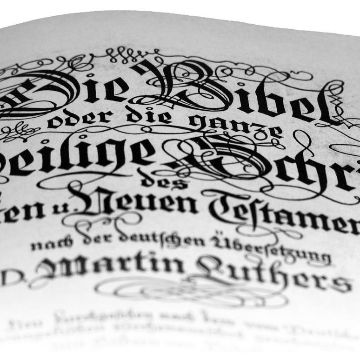 Die Bibel
oder die ganze
Heilige Schri
des
en u Neuen Testamen
nach der deutschen Übersetzung
D. Martin Luthers